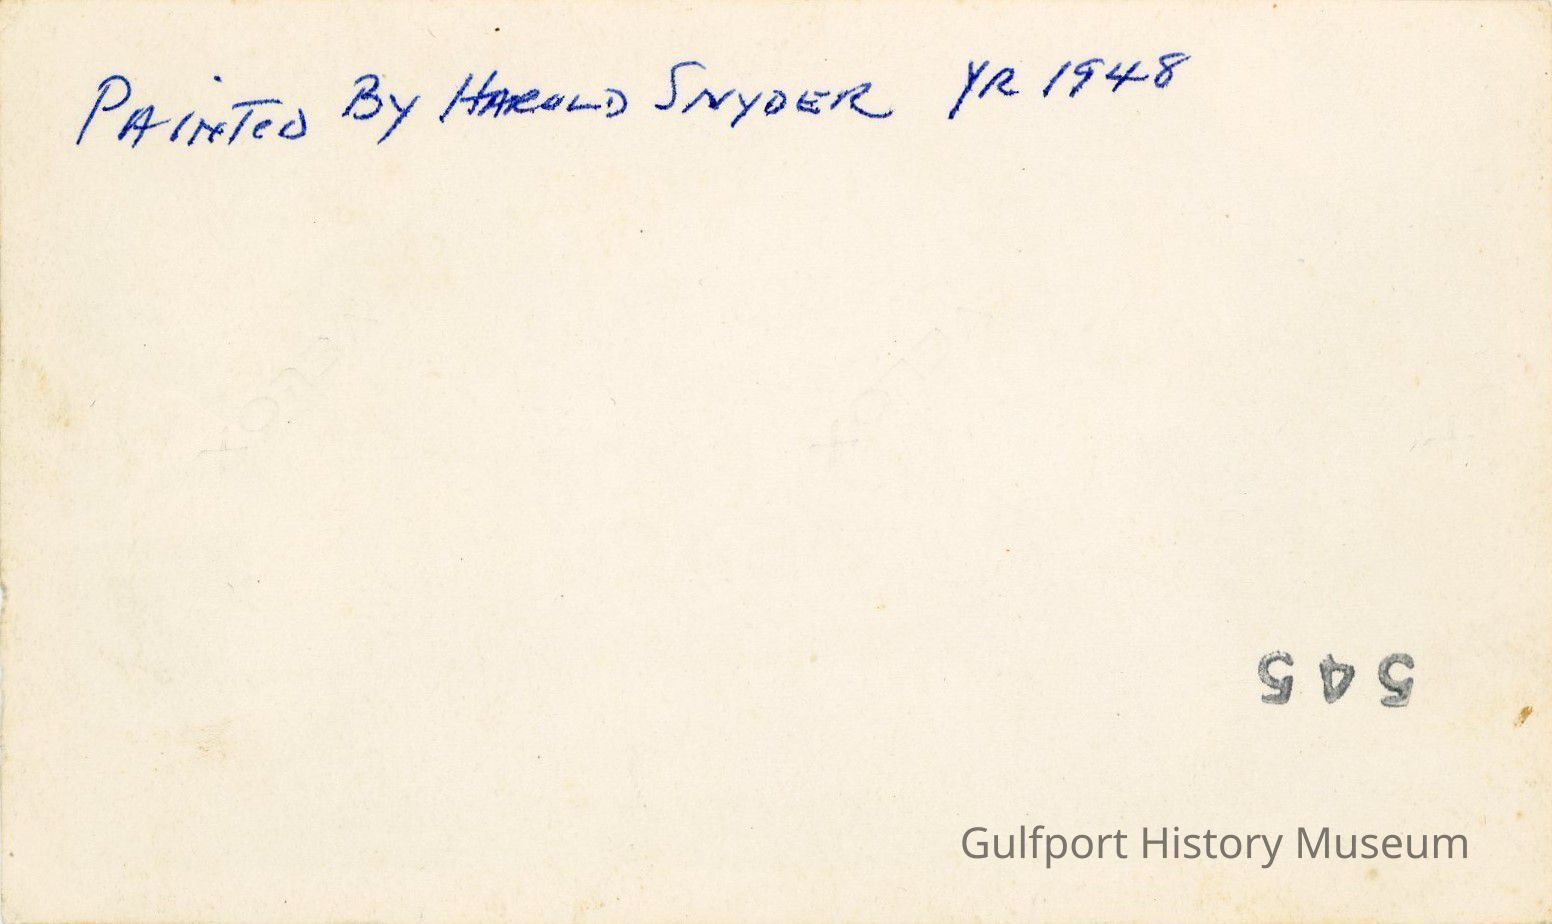 PAINTED BY HAROLD SNYDER YR 1948
545
Gulfport History Museum